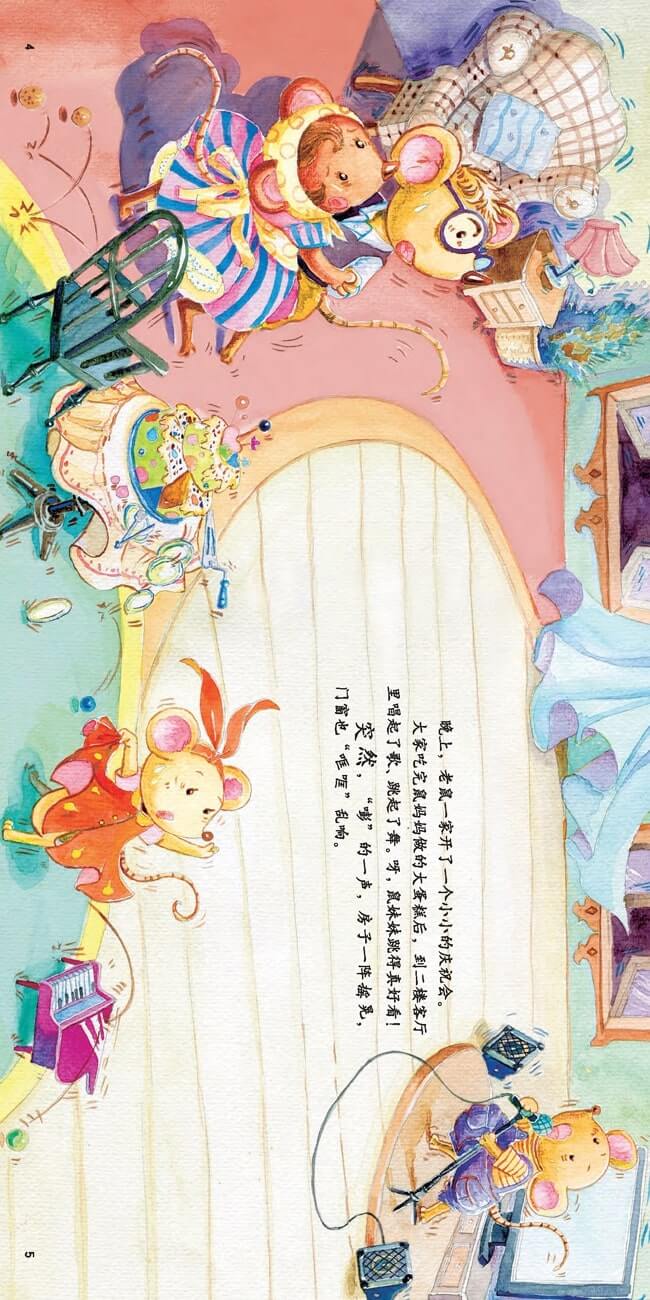 晚上，老鼠一家开了一个小小的庆祝会。
大家吃完鼠妈妈做的大蛋糕后，到二楼客厅
里唱起了歌、跳起了舞。呀，鼠妹妹跳得真好看！
突然，“嘭”的一声，房子一阵摇晃，
门窗也“哐哐”乱响。
4
5